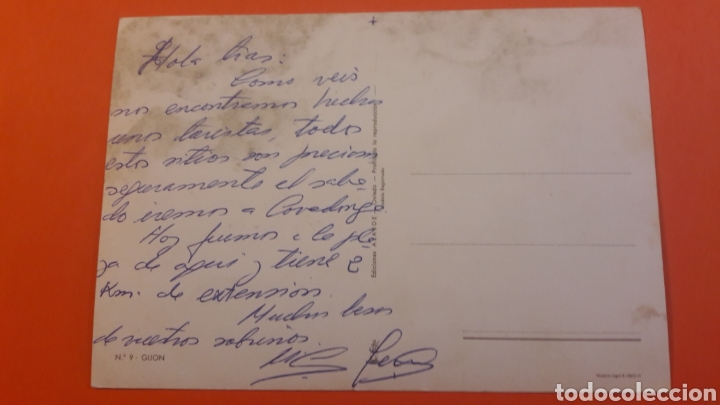 Hola tias:
Como veis
nos encontramos hechos
unos turistas, todos
estos sitios son preciosos
seguramente el saba-
do iremos a Covadonga
Hoy fuimos a la pla-
ya de aqui y tiene 2
Km. de extensión.
Muchos besos
de vuestros sobrinos
N.º 9 - GIJON
Ediciones - Oviedo - Prohibida la reproducción
todocoleccion